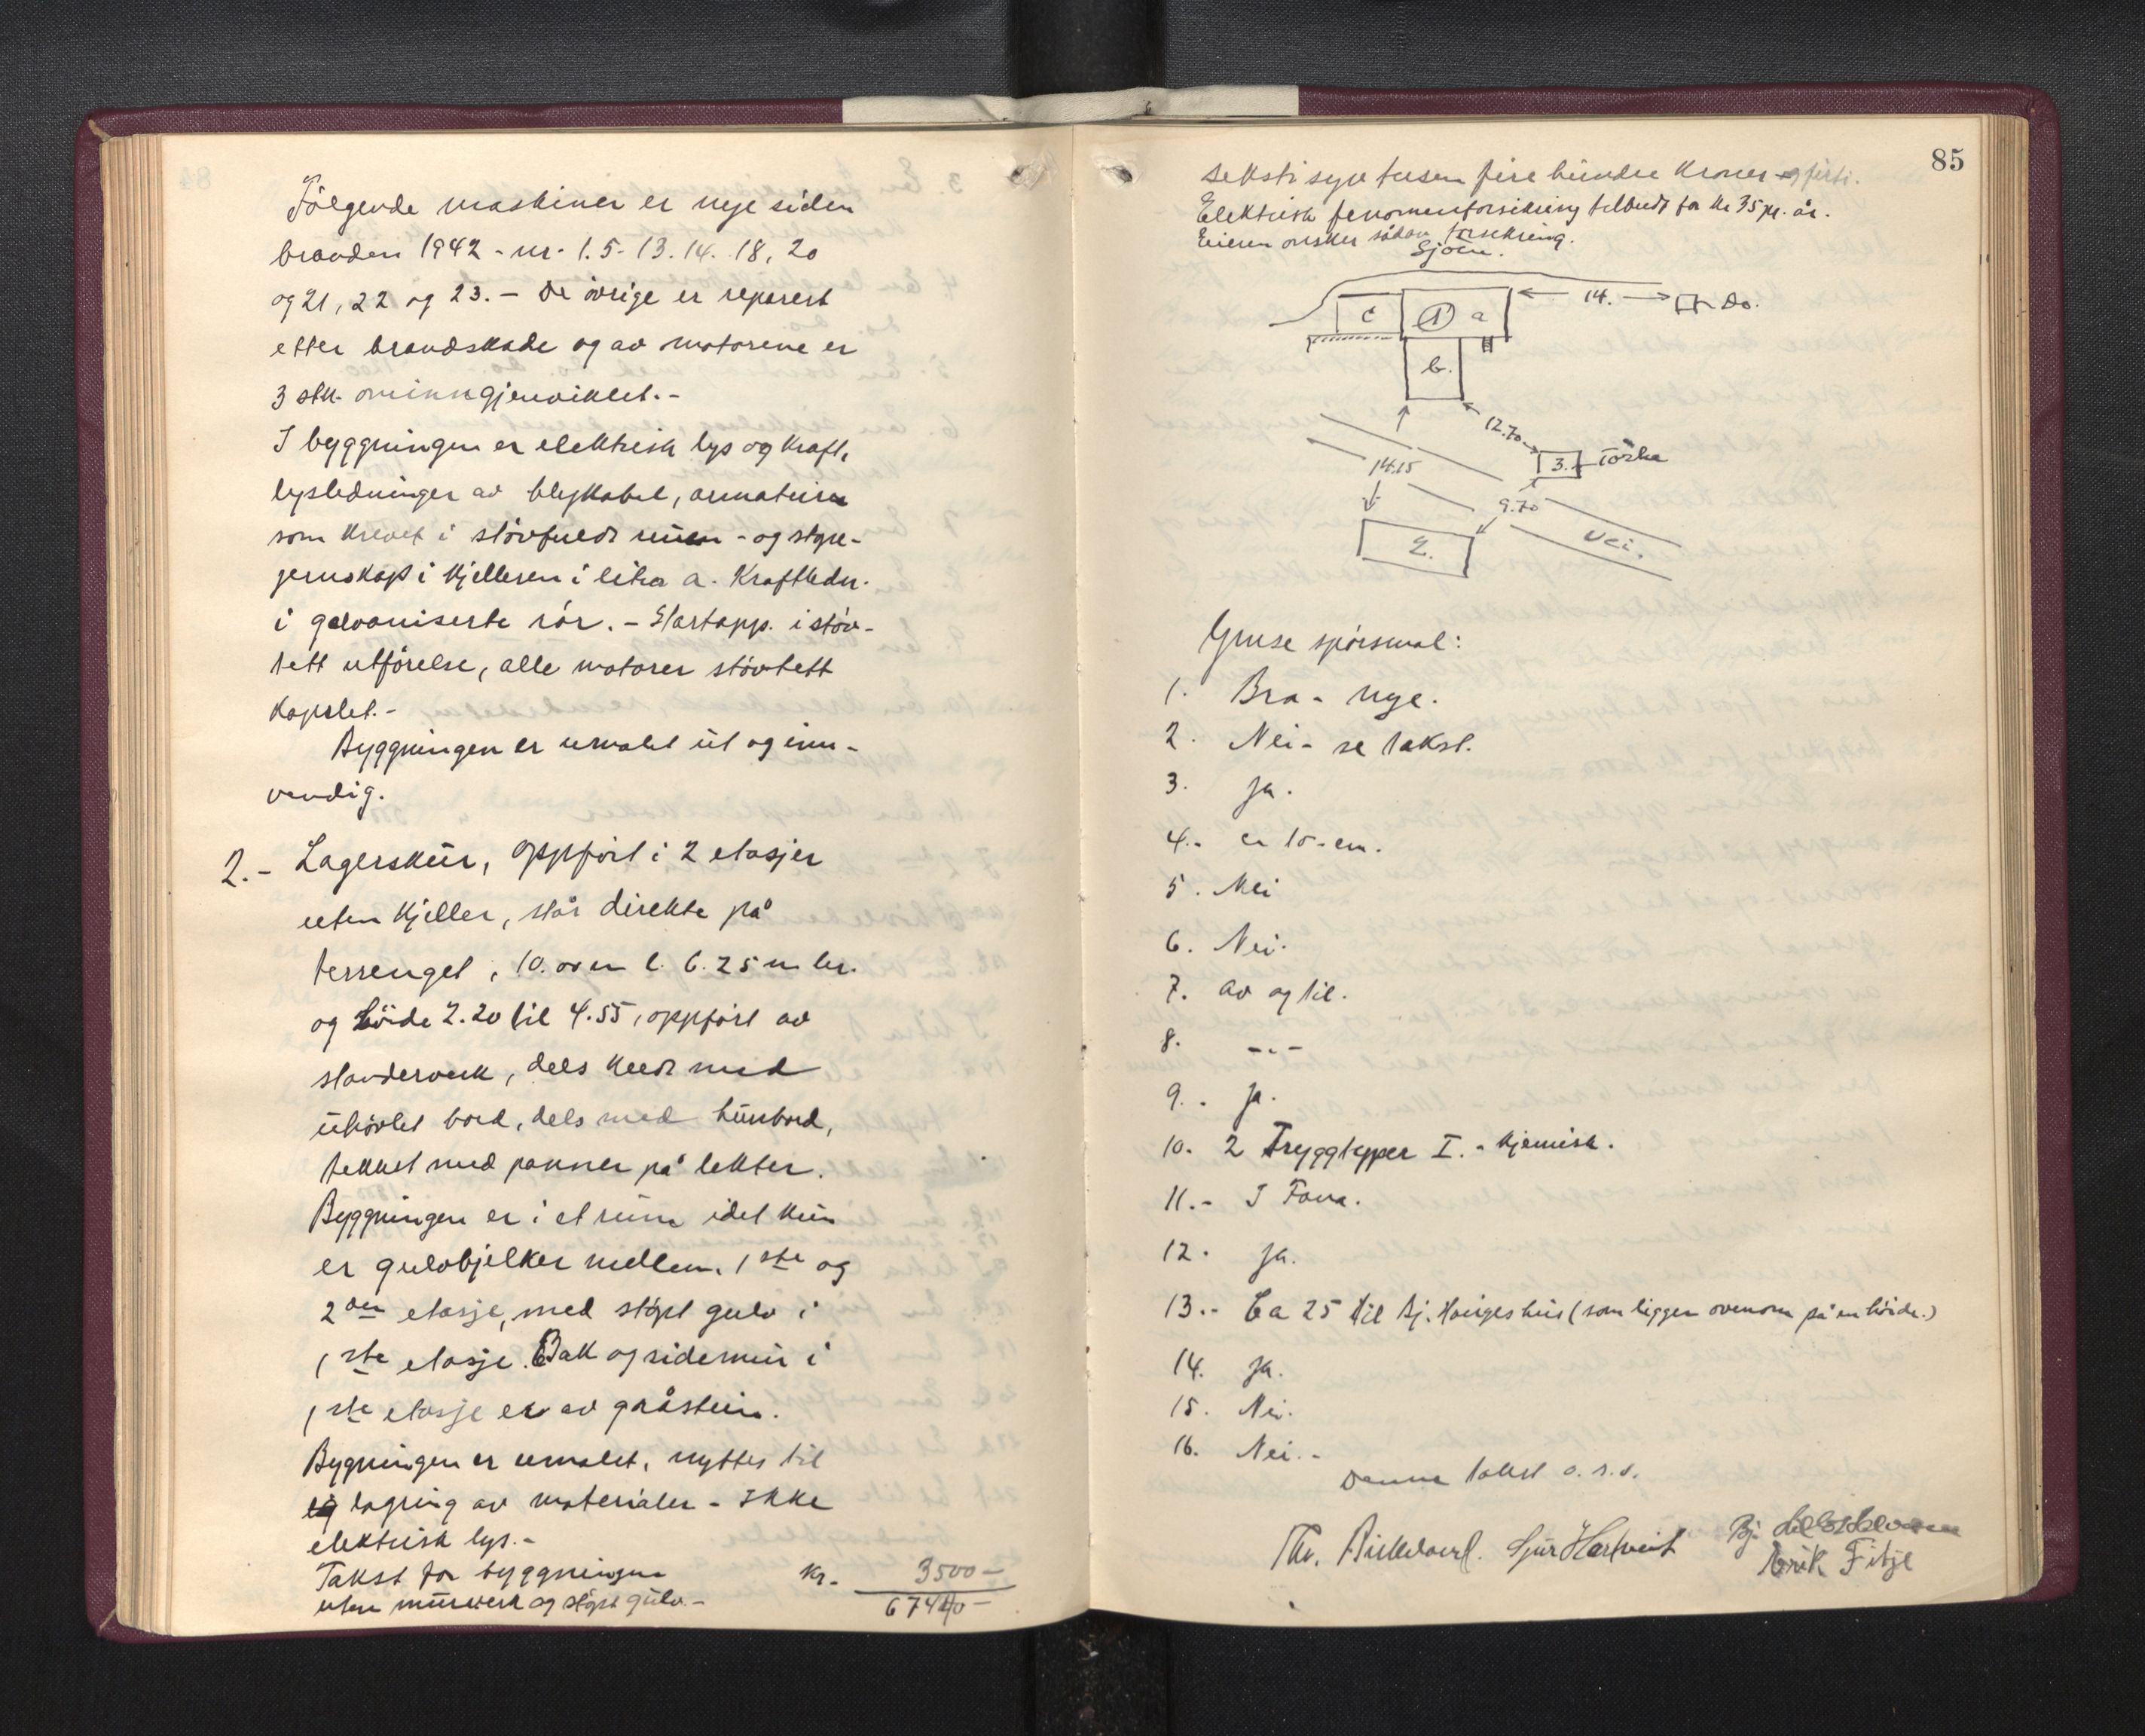 Følgende maskiner er nye siden
branden 1942 - nr. 1. 5 - 13. 14. 18, 20
og 21, 22 og 23. - De øvrige er reparert
etter brandskade og av motorene er
3 stk. ominngjenviklet. -
I byggningen er elektrisk lys og kraft,
lysledninger av blykabel, armaturer
som krevet i støvfuldt rum - og styre-
jernskap i kjelleren i litra a. Kraftledn.
i galvaniserte rør. - Startapp. i støv-
tett utførelse, alle motorer støvtett
kapslet. -
Byggningen er umalet ut og inn-
vendig.
2. - Lagerskur, oppført i 2 etasjer
uten kjeller, står direkte på
terrenget, 10. m l. 6.25 m br.
og høide 2.20 til 4.55, oppført av
standerverk, dels kledt med
uhøvlet bord, dels med hunbord,
tekket med panner på lekter.
Byggningen er i et rum idet kun
er gulvbjelker mellem 1ste og
2den etasje, med støpt gulv i
1ste etasje. Bak og sidemur i
1ste etasje er av gråstein.
Bygningen er umalet, nyttes til
lagring av materialer - Ikke
elektrisk lys. -
Takst for byggningen kr. 3500 -
uten murverk og støpt gulv. - 67440 -
85
sekstisyv tusen fire hundre kroner og førti.
Elektrisk fenomenforsikring tilbudt for kr 35 pr. år.
Eieren ønsker sådan forsikring.
Sjøen.
c 1 a 14. Do.
b.
12.70
14.15 3. Tørke
9.70
2. Vei.
Gruse spørsmal:
1. Bra - nye.
2. Nei - se takst.
3. Ja.
4. - ca 15 - cm.
5. Nei
6. Nei.
7. av og til.
8. -.-
9. . Ja.
10. 2 Tryggtepper I. - kjemisk.
11. - I Fana.
12. Ja.
13. - Ca 25 til Bj. Hauges hus (som ligger ovenom på en høide.)
14. Ja.
15. Nei.
16. Nei. -
Denne takst o. s. v.
Sjur Hartveit Bj.
Erik Fitje